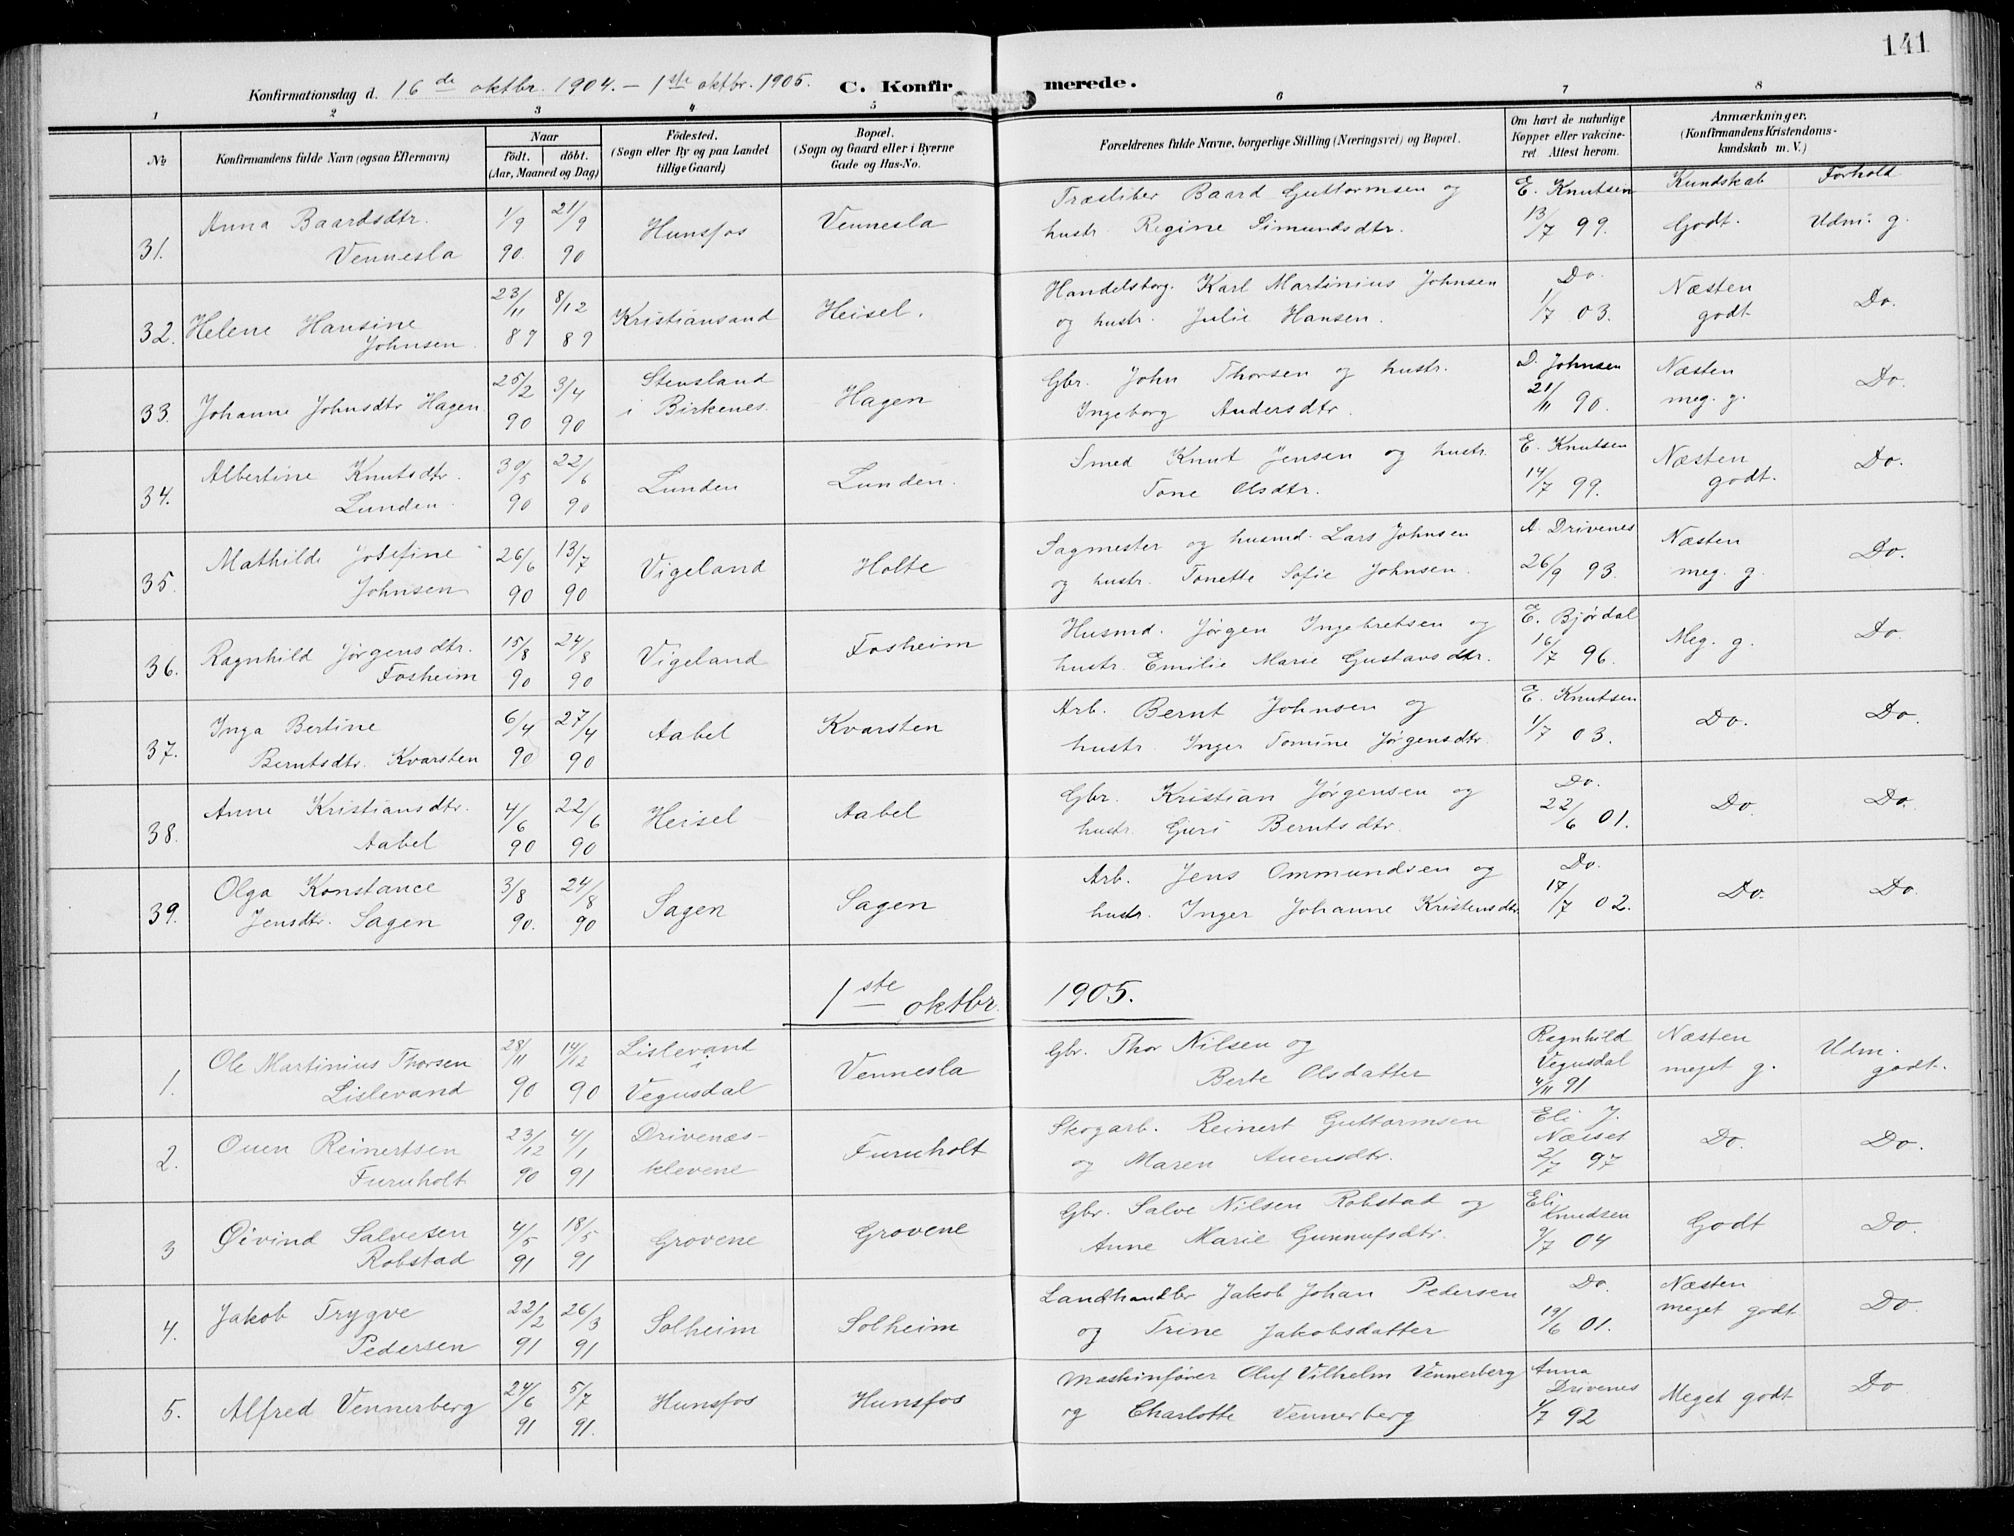 141
Konfirmationsdag d. 16de oktbr. 1904. – 1ste oktbr. 1905. C. Konfirmerede.
1 2 3 4 5 6 7 8
No
Konfirmandens fulde Navn (ogsaa Efternavn)
Naar
født. døbt.
(Aar, Maaned og Dag)
Fødested.
(Sogn eller By og paa Landet
tillige Gaard)
Bopæl.
(Sogn og Gaard eller i Byerne
Gade og Hus-No.
Forældrenes fulde Navne, borgerlige Stilling (Næringsvei) og Bopæl.
Om havt de naturlige
Kopper eller vakcine-
ret Attest herom.
Anmærkninger.
(Konfirmandens Kristendoms-
kundskab m. V.)
Kundskab Forhold
31. Anna Baardsdtr. Vennesla 1/9 90. 21/9 90 Hunsfos Vennesla Træsliber Baard Guttormsen og hustr. Regine Simundsdtr. E. Knutsen 13/7 99. Godt. Udm. g.
32. Helene Hansine Johnsen. 23/11 89 8/12 89 Kristiansand Heisel. Handelsborg. Karl Martinius Johnsen og hustr. Julie Hansen. Do. 1/7 03. Næsten godt Do.
33. Johanne Johnsdtr Hagen 25/2 90 3/4 90 Stensland i Birkenes. Hagen Gbr. John Thorsen og hustr. Ingeborg Andersdtr. D. Johnsen 21/11 90. Næsten meg. g. Do.
34. Albertine Knutsdtr. Lunden. 30/5 90 22/6 90 Lunden Lunden. Smed Knut Jensen og hustr. Tone Olsdtr. E. Knutsen 14/7 99. Næsten godt. Do.
35. Mathilde Josefine Johnsen 26/6 90 13/7 90 Vigeland Holte Sagmester og husmd. Lars Johnsen og hustr. Tonette Sofie Johnsen. A. Drivenes 26/9 93. Næsten meg. g. Do.
36. Ragnhild Jørgensdtr. Fosheim 15/8 90 24/8 90 Vigeland Fosheim Husmd. Jørgen Ingebretsen og hustr. Emilie Marie Gustavsdtr. E. Bjørdal 16/7 96. Meg. g. Do.
37. Inga Bertine Berntsdtr. Kvarsten 6/4 90 27/4 90 Aabel Kvarsten Arb. Bernt Johnsen og hustr. Inger Tomine Jørgensdtr. E. Knutsen 1/7 03. Do. Do.
38. Anne Kristiansdtr. Aabel 4/6 90 22/6 90 Heisel Aabel Gbr. Kristian Jørgensen og hustr. Guri Berntsdtr. Do. 22/6 01. Do. Do.
39. Olga Konstance Jensdtr. Sagen 3/8 90. 24/8 90 Sagen Sagen Arb. Jens Ommundsen og hustr. Inger Johanne Kristensdtr. Do. 17/7 02. Do. Do.
1ste oktbr. 1905.
1. Ole Martinius Thorsen Lislevand 28/11 90 14/12 90 Lislevand i Vegusdal Vennesla Gbr. Thor Nilsen og Berte Olsdatter Ragnhild Vegusdal 4/11 91 Næsten meget g. Udm. godt.
2. Ouen Reinertsen Furuholt 23/12 90 4/1 91 Drivenæs-klevene Furuholt Skogarb. Reinert Guttormsen og Maren Auensdtr. Eli J. Næsset 2/7 97 Do. Do.
3 Øivind Salvesen Robstad 4/5 91 18/5 91 Grovene Grovene Gbr. Salve Nilsen Robstad og Anne Marie Gunnufsdtr. Eli Knudsen 9/7 04 Godt Do.
4. Jakob Trygve Pedersen 22/2 91 26/3 91 Solheim Solheim Landhandler Jakob Johan Pedersen og Trine Jakobsdatter Do 19/6 01. Næsten meget godt Do.
5. Alfred Vennerberg 24/6 91 5/7 91. Hunsfos Hunsfos Maskinfører Oluf Vilhelm Vennerberg og Charlotte Vennerberg Anna Drivenes 4/7 92 Meget godt Do